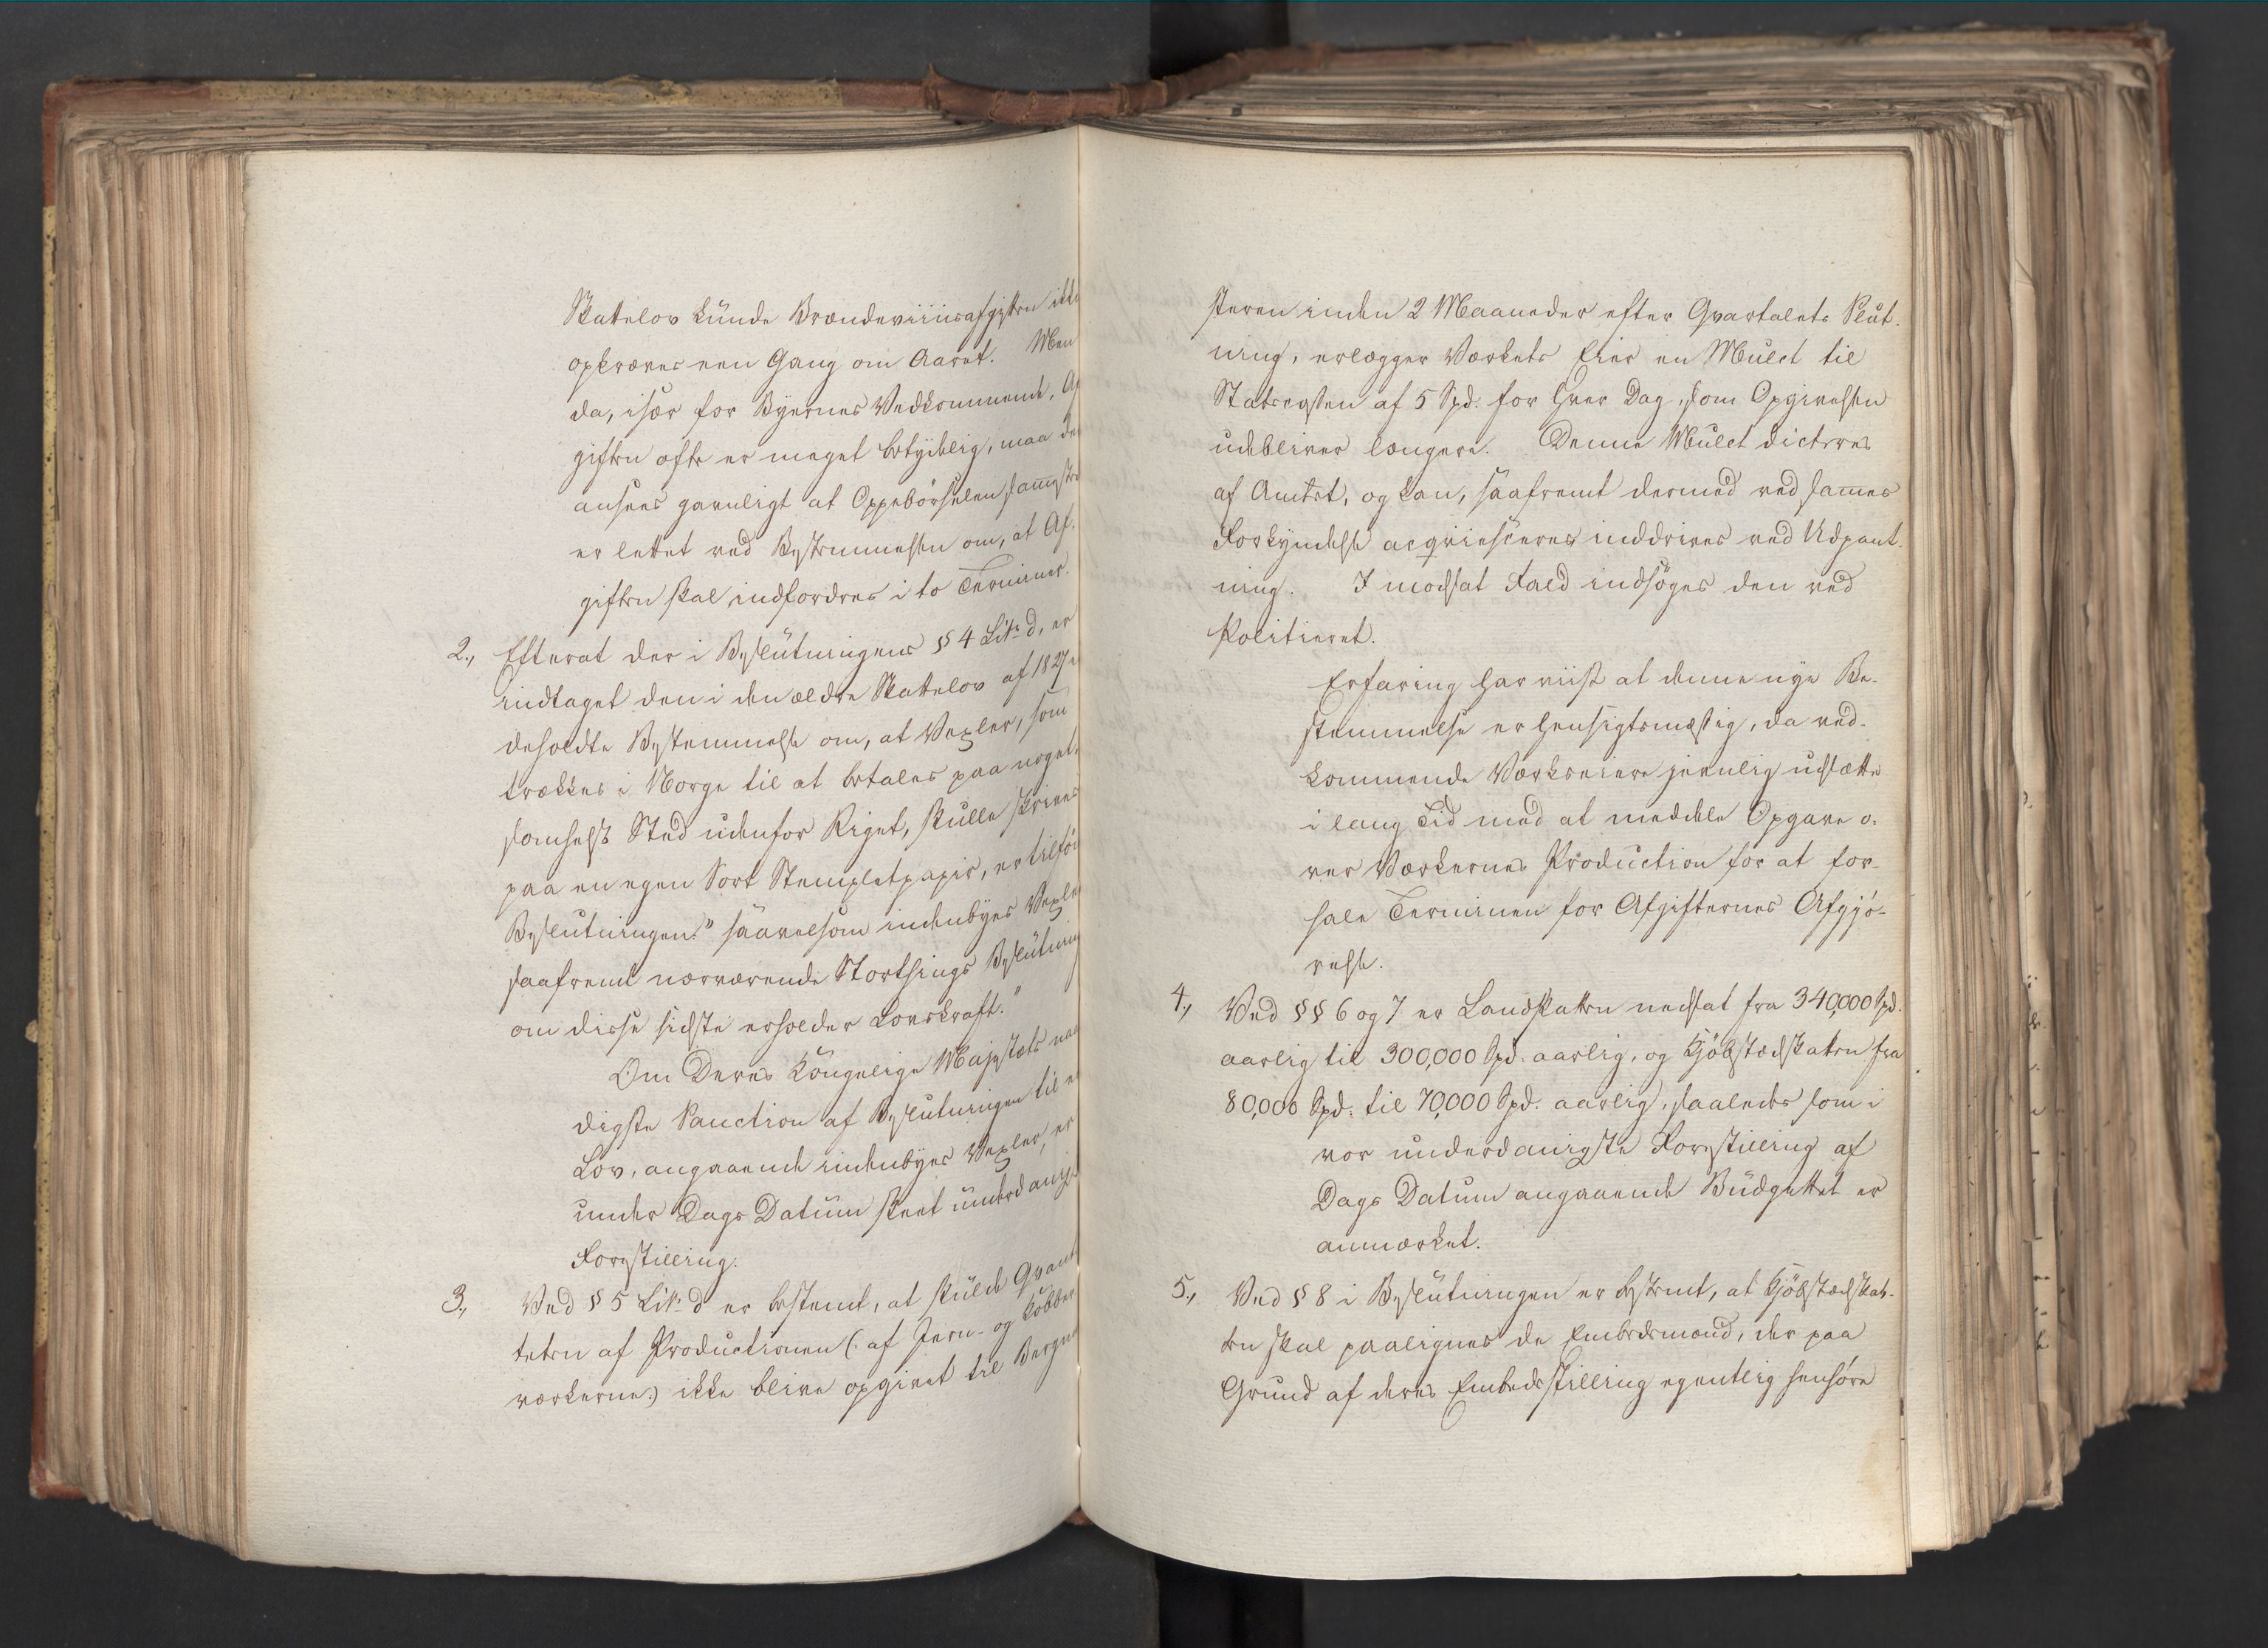 Skattelov kunde Brændeviinsafgiften ikke
opkræves een Gang om Aaret. Men
da, især for Byernes Vedkommende, Af
giften ofte er meget betydelig, maa det
ansees gavnligt at Oppebørselen
er lettet ved Bestemmelsen om, at Af-
giften skal indfordres i to Terminer.
2., Efterat der i Beslutningens § 4 Litr d, er
indtaget den i den ældre Skattelov af 1827 in
deholdte Bestemmelse om, at Vexler, som
trækkes i Norge til at betales paa noget-
somhelst Sted udenfor Riget, skulle skrives
paa en egen Sort Stempletpapir, er tilføi
Beslutningen: "saavelsom indenbyes Vexle
saafremt nærværende Storthings Beslutning
om disse sidste erholder Lovskraft."
Om Deres Kongelige Majestæts naa
digste Sanction af Beslutningen til en
Lov, angaaende indenbyes Vexler, er
under Dags Datum skeet underdanigst
Forestilling.
3., Ved § 5 Litr d er bestemt, at skulde Qvanti
teten af Productionen (: af Jern- og Kobber
værkerne :) ikke blive opgivet til Bergme
steren inden 2 Maaneder efter Qvartalets Slut-
ning, erlægger Værkets Eier en Mulct til
Statscassen af 5 Spd. for hver Dag, som Opgivelsen
udebliver længere. Denne Mulct dicteres
af Amtet, og kan, saafremt dermed ved sammes
Forkyndelse acqviesceres inddrives ved Udpant-
ning. I modsat Fald indsøges den ved
Politieret.
Erfaring har viist at denne nye Be-
stemmelse er hensigtsmæssig, da ved-
kommende Værkseiere jevnlig udsætte
i lang Tid med at meddele Opgave o-
ver Værkernes Production for at for-
hale Terminen for Afgifternes Afgjø-
relse.
4., Ved §§ 6 og 7 er Landskatten nedsat fra 340,000 Spd.
aarlig til 300,000 Spd. aarlig, og Kjøbstædskatten fra
80,000 Spd. til 70,000 Spd. aarlig, saaledes som i
vor underdanigste Forestilling af
Dags Datum angaaende Budgettet er
anmærket.
5., Ved § 8 i Beslutningen er bestemt, at Kjøbstædskat-
ten skal paalignes de Embedsmænd, der paa
Grund af deres Embedsstilling egentlig henhøre